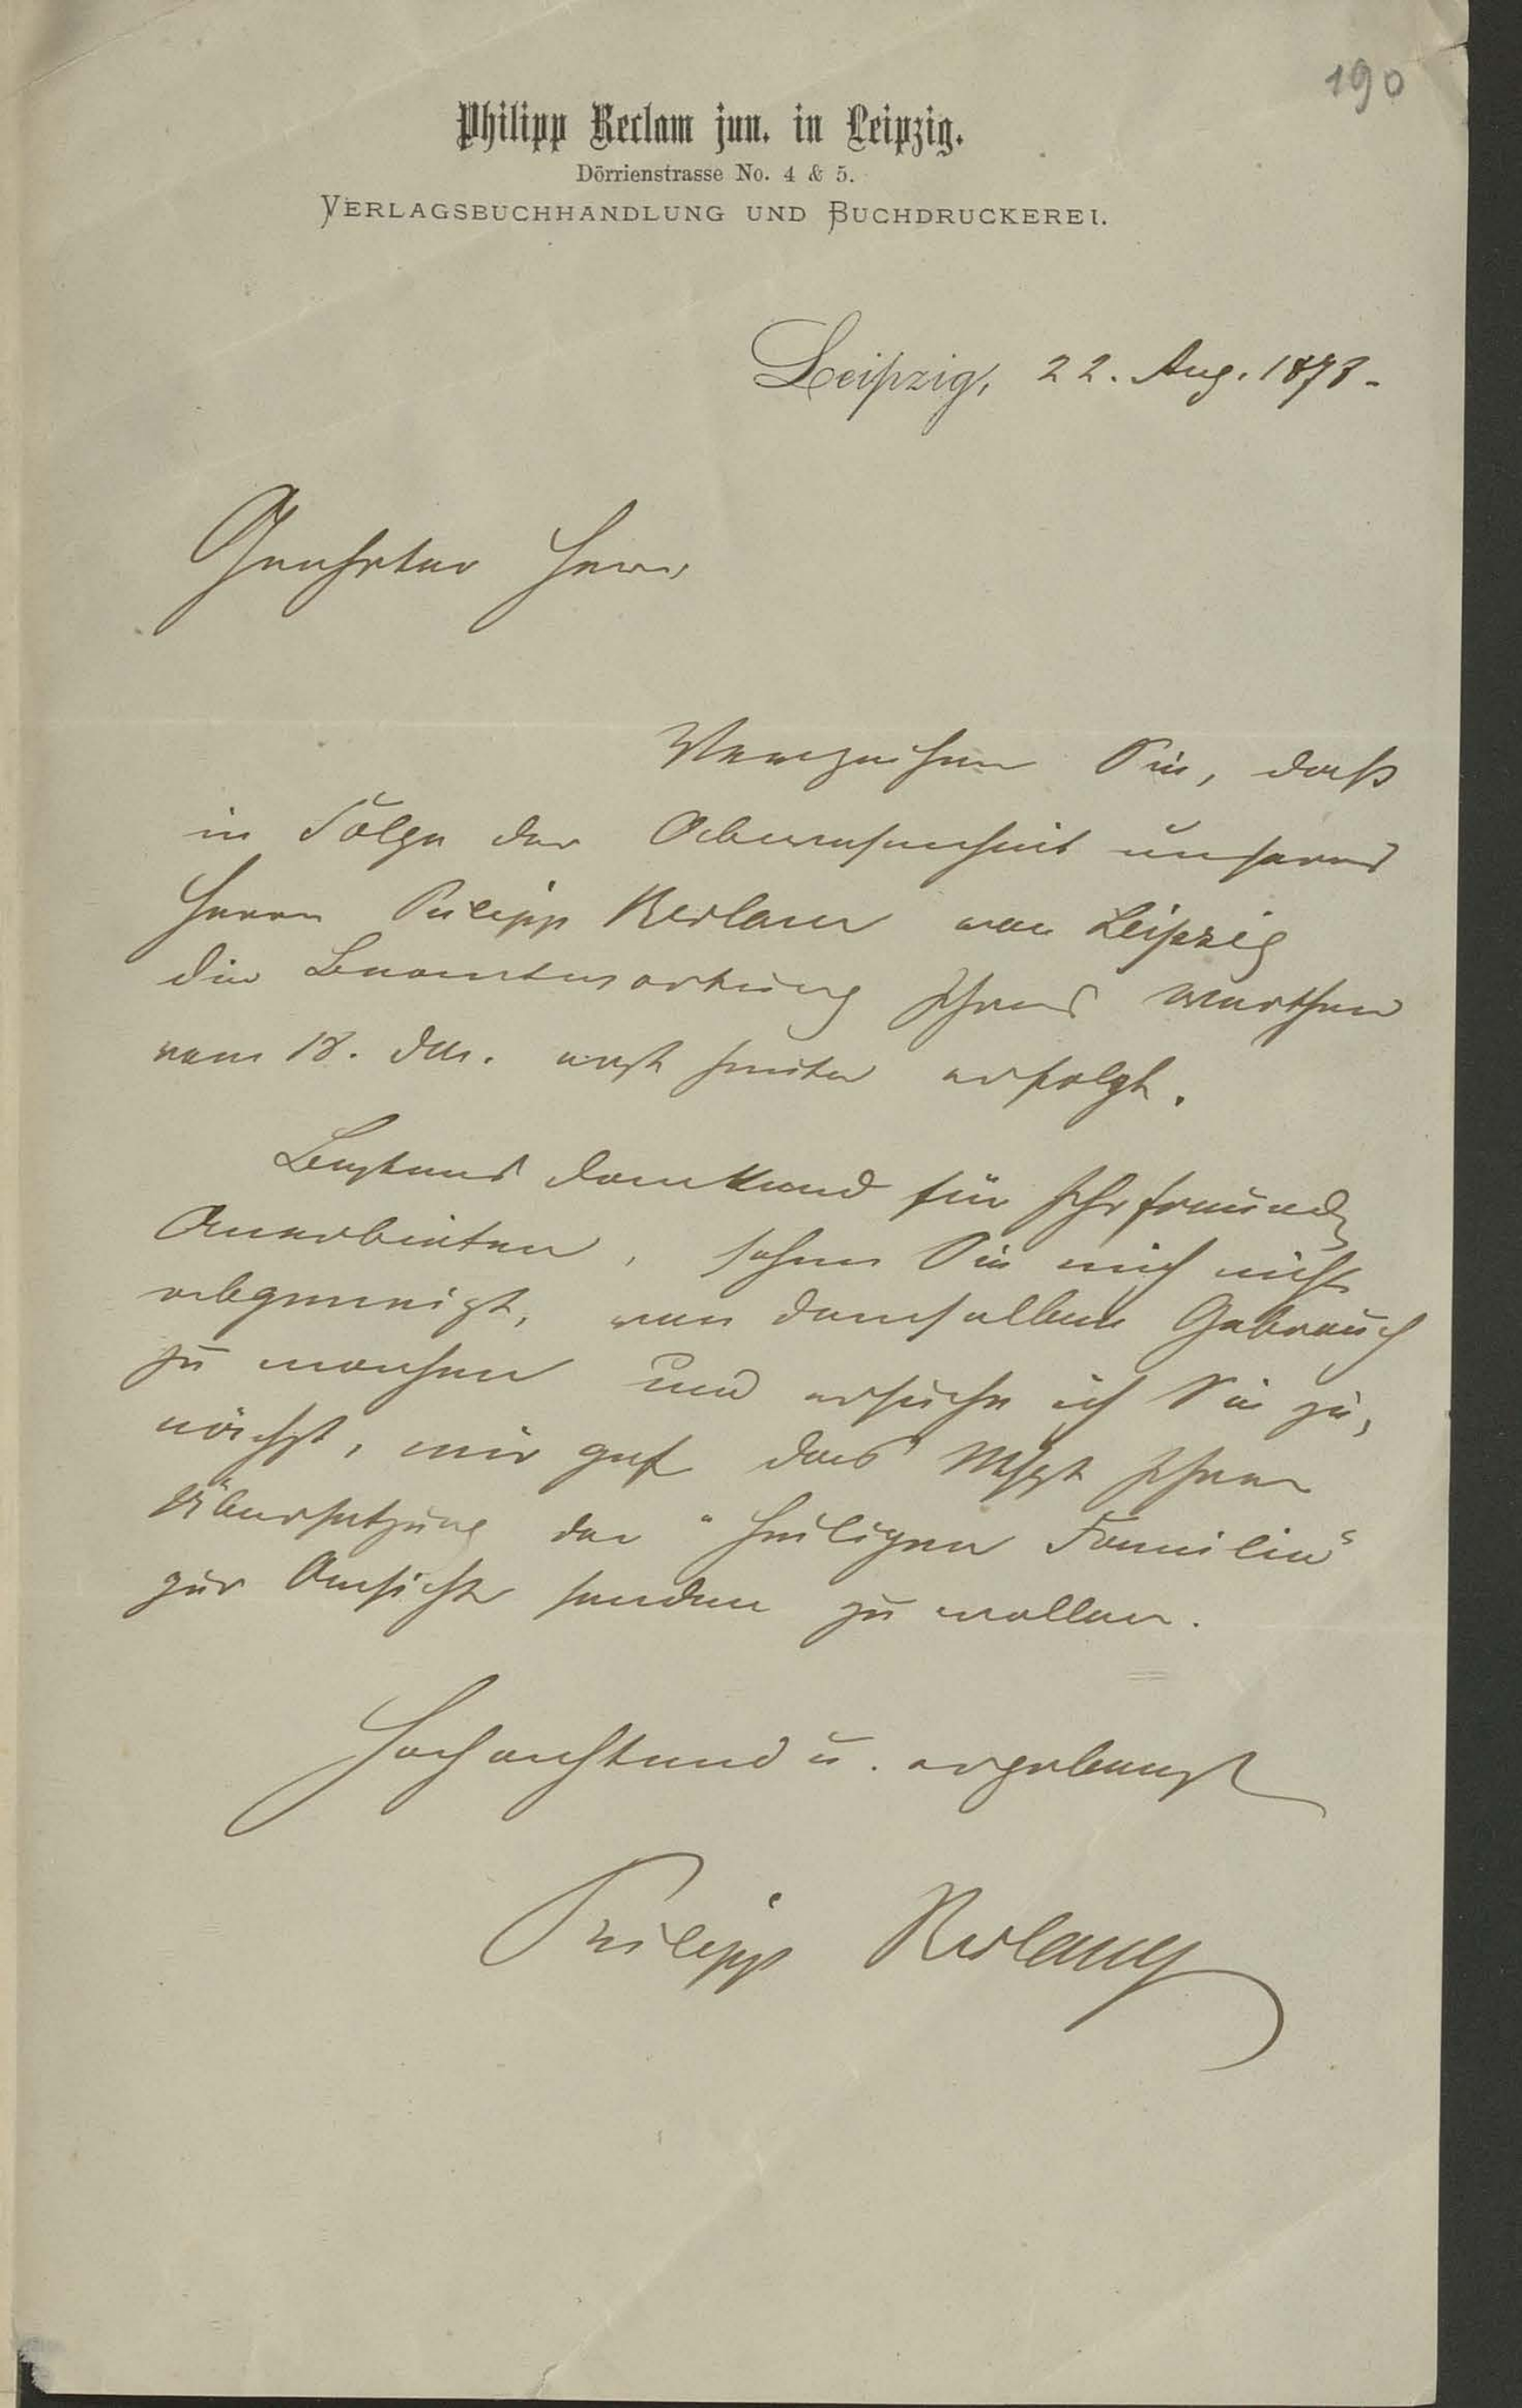 190
Philipp Reclam jun. in Leipzig.
Dörrienstrasse No. 4 & 5.
VERLAGSBUCHHANDLUNG UND BUCHDRUCKEREI.
Leipzig, 22. Aug. 1878.
Geehrter Herr
Verzeihen Sie, daß
in Folge der Abwesenheit unseres
Herrn Philipp Reclam von Leipzig
die Beantwortung Ihres Werthen
vom 18. dM. erst heute erfolgt.
Bestens dankend für Ihr freundl
Anerbieten, sehen Sie mich nicht
abgeneigt, von demselben Gebrauch
zu machen und ersuche ich Sie zu,
nächst, mir gef das Mspt Ihrer
Übersetzung der "Heiligen Familie"
zur Ansicht senden zu wollen.
Hochachtend u. ergebenst
Philipp Reclam